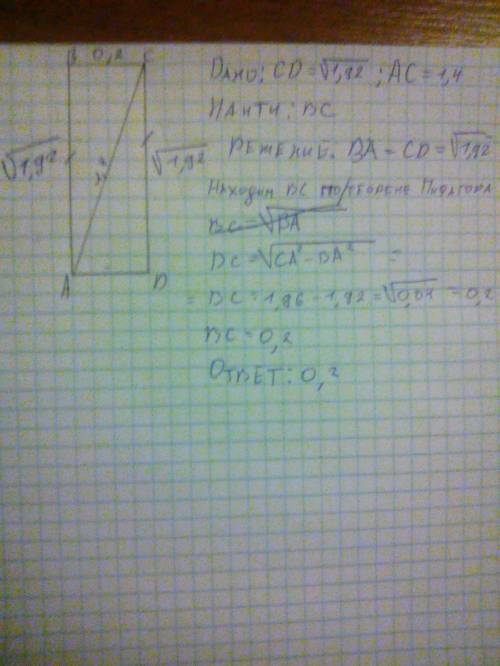 B 0,2 C
√1,92 √1,92
1,4
A D
Дано: CD = √1,92 ; AC = 1,4
Найти: BC
Решение. BA = CD = √1,92
Находим BC по теореме Пифагора
BC = √BA
BC = √CA² - BA² =
= BC = 1,96 - 1,92 = √0,04 = 0,2
BC = 0,2
Ответ: 0,2